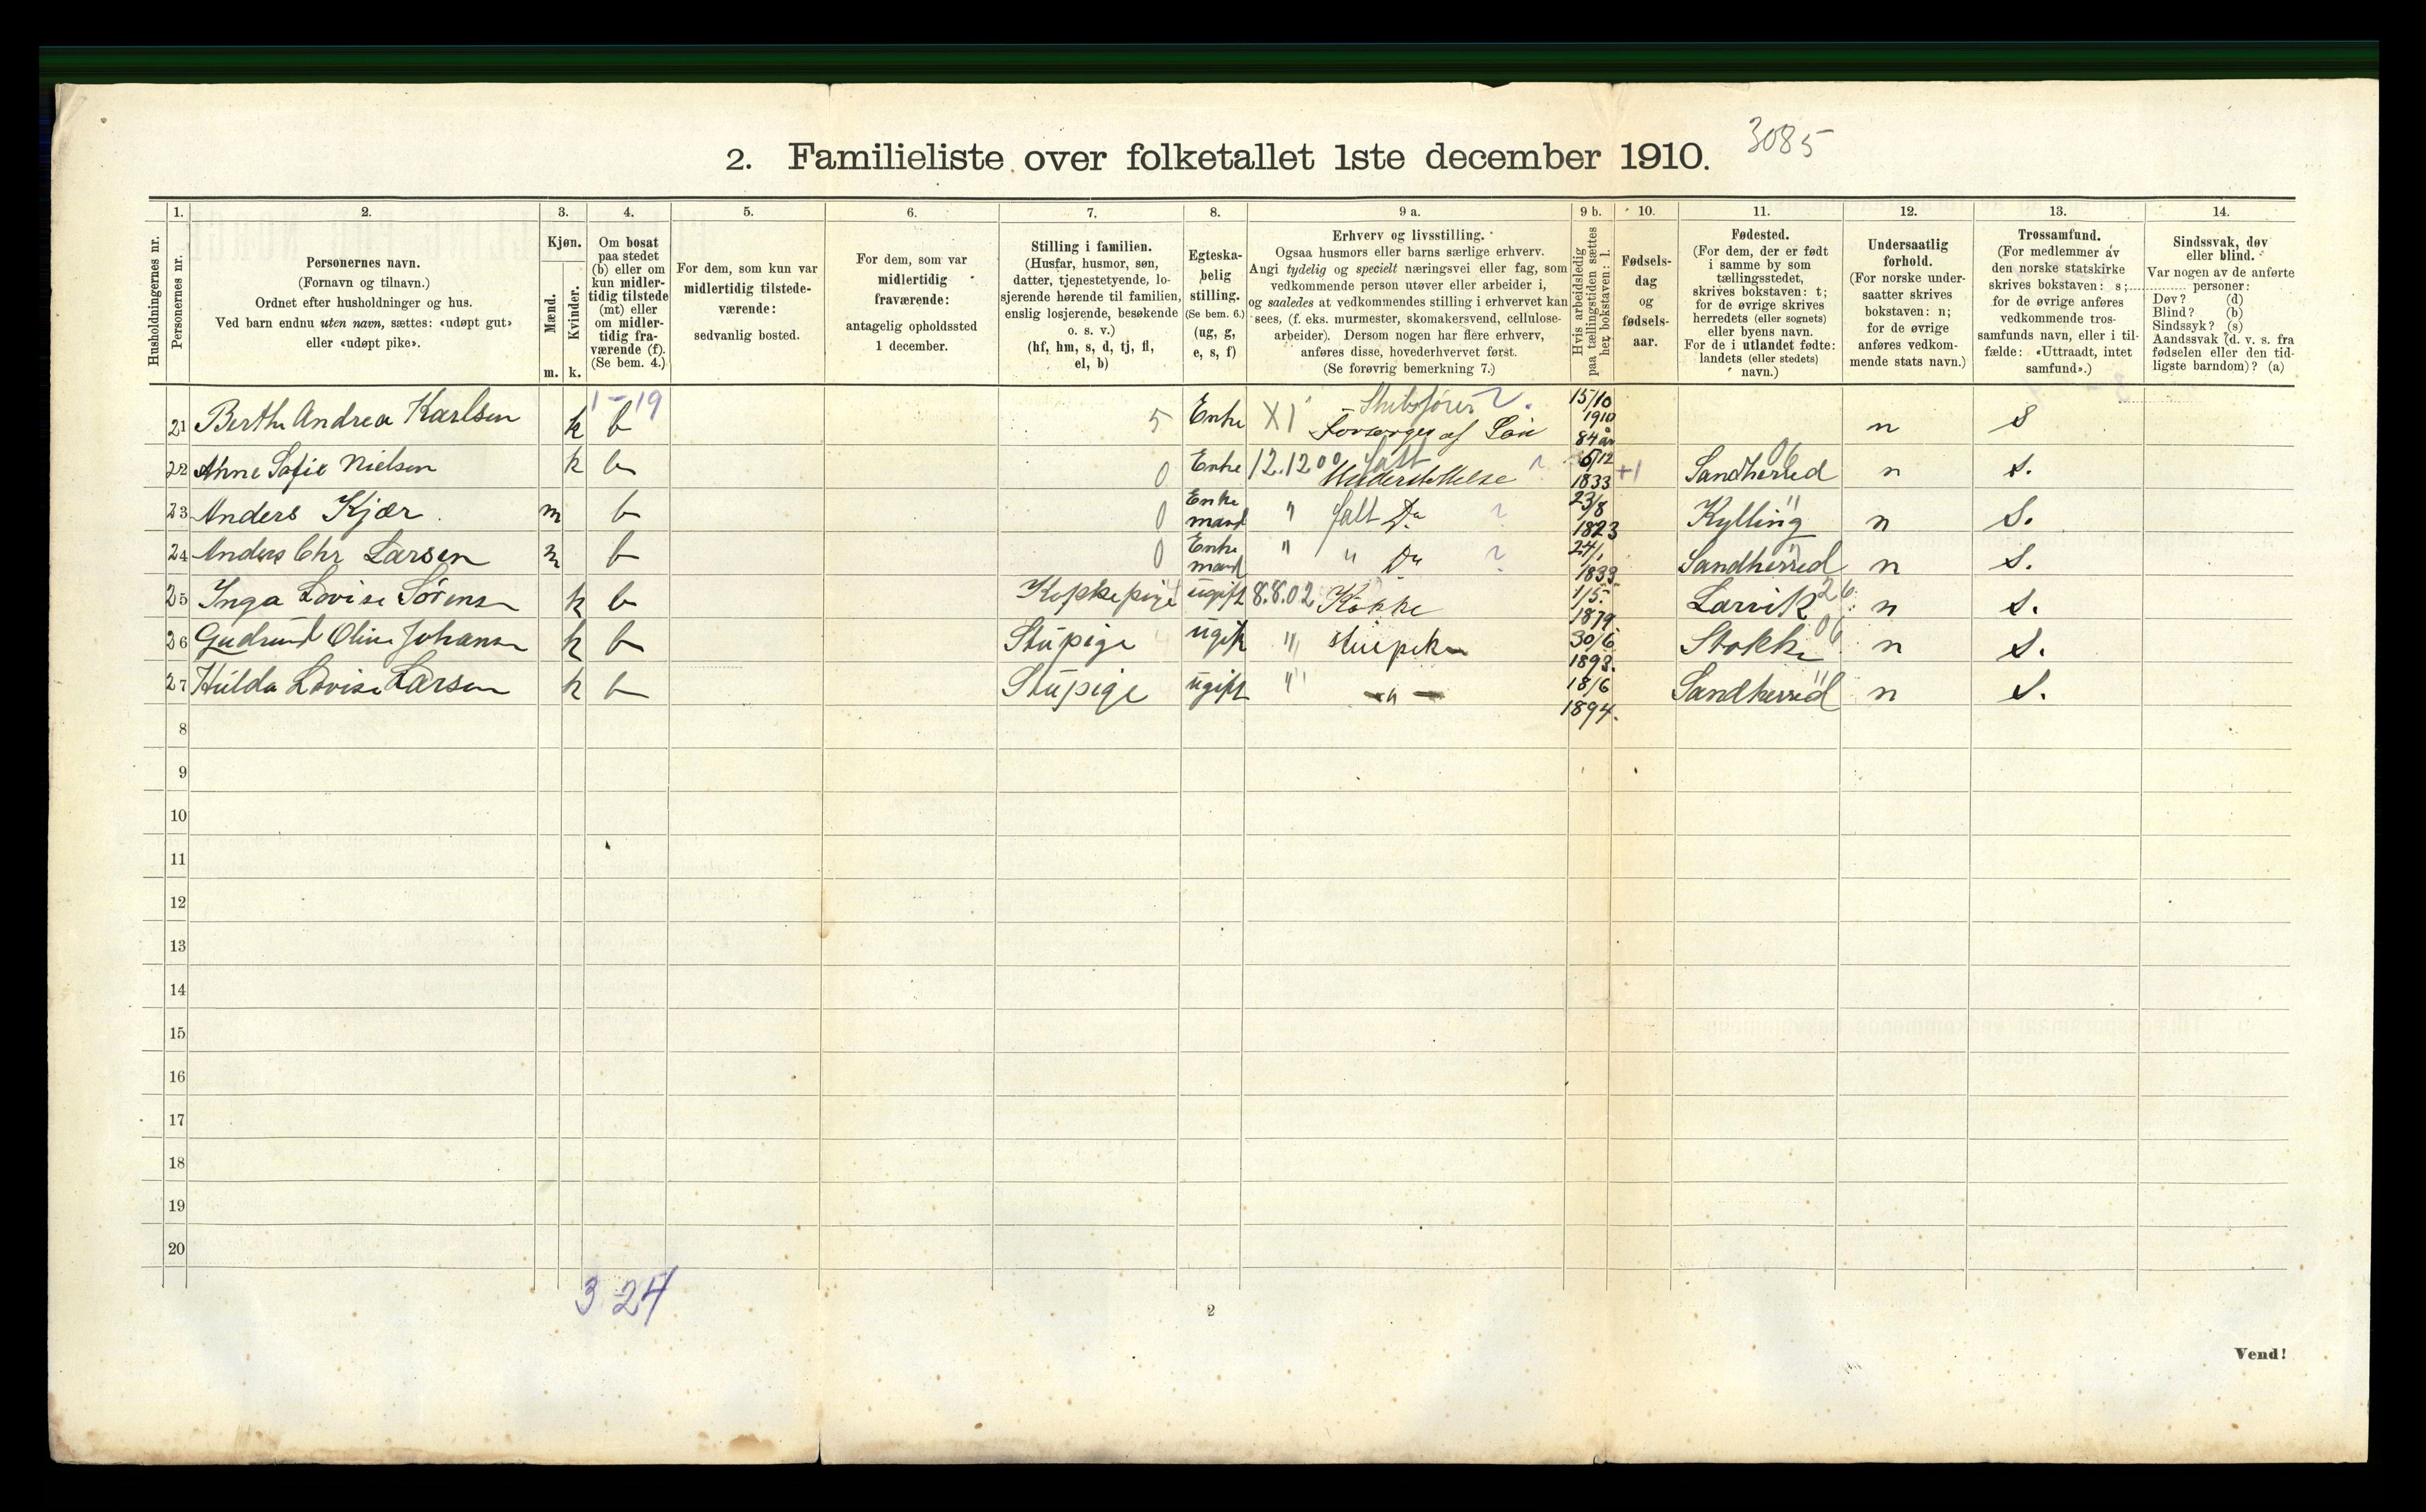 3085
2. Familieliste over folketallet 1ste december 1910.
Husholdningernes nr.
1. Personernes nr.
2. Personernes navn.
(Fornavn og tilnavn.)
Ordnet efter husholdninger og hus.
Ved barn endnu uten navn, sættes: «udøpt gut»
eller «udøpt pike».
3. Kjøn.
Mænd. m.
Kvinder. k.
4. Om bosat
paa stedet
(b) eller om
kun midler-
tidig tilstede
(mt) eller
om midler-
tidig fra-
værende (f).
(Se bem. 4.)
5. For dem, som kun var
midlertidig tilstede-
værende:
sedvanlig bosted.
6. For dem, som var
midlertidig
fraværende:
antagelig opholdssted
1 december.
7. Stilling i familien.
(Husfar, husmor, søn,
datter, tjenestetyende, lo-
sjerende hørende til familien,
enslig losjerende, besøkende
o. s. v.)
(hf, hm, s, d, tj, fl,
el, b)
8. Egteska-
belig
stilling.
(Se bem. 6.)
(ug, g,
e, s, f)
9 a. Erhverv og livsstilling.
Ogsaa husmors eller barns særlige erhverv.
Angi tydelig og specielt næringsvei eller fag, som
vedkommende person utøver eller arbeider i,
og saaledes at vedkommendes stilling i erhvervet kan
sees, (f. eks. murmester, skomakersvend, cellulose-
arbeider). Dersom nogen har flere erhverv,
anføres disse, hovederhvervet først.
(Se forøvrig bemerkning 7.)
9 b. Hvis arbeidsledig
paa tællingstiden sættes
her bokstaven: l.
10. Fødsels-
dag
og
fødsels-
aar.
11. Fødested.
(For dem, der er født
i samme by som
tællingsstedet,
skrives bokstaven: t;
for de øvrige skrives
herredets (eller sognets)
eller byens navn.
For de i utlandet fødte:
landets (eller stedets)
navn.)
12. Undersaatlig
forhold.
(For norske under-
saatter skrives
bokstaven: n;
for de øvrige
anføres vedkom-
mende stats navn.)
13. Trossamfund.
(For medlemmer av
den norske statskirke
skrives bokstaven: s;
for de øvrige anføres
vedkommende tros-
samfunds navn, eller i til-
fælde: «Uttraadt, intet
samfund».)
14. Sindssvak, døv
eller blind.
Var nogen av de anførte
personer:
Døv? (d)
Blind? (b)
Sindssyk? (s)
Aandssvak (d. v. s. fra
fødselen eller den tid-
ligste barndom)? (a)
1-19
21 Berthe Andrea Karlsen k b 5 Enke X1 Skibsfører Forsørges af Søn 15/10 1910 84 år n S
22 Anne Sofie Nielsen k b 0 Enke 12.1200 falt Understøttelse 6/12 1833 +1 Sandherred 06 n S.
23 Anders Kjær m b 0 Enke mand " falt Do 23/8 1823 Kylling " n S.
24 Anders Chr Larsen m b 0 Enke mand " " Do 24/1 1833 Sandherred " n S.
25 Inga Lovise Sørensen k b Kokkepige ugift 8.8.02 Kokke 1/5 1879 Larvik 26 n S.
26 Gudrund Oline Johansen k b Stupige ugift " stuepike 30/6 1893. Stokke 06 n S.
27 Hulda Lovise Larsen k b Stupige ugift " — " — 18/6 1894. Sandherred " n S.
8
9
10
11
12
13
14
15
16
17
18
19
20
3 24
2
Vend!